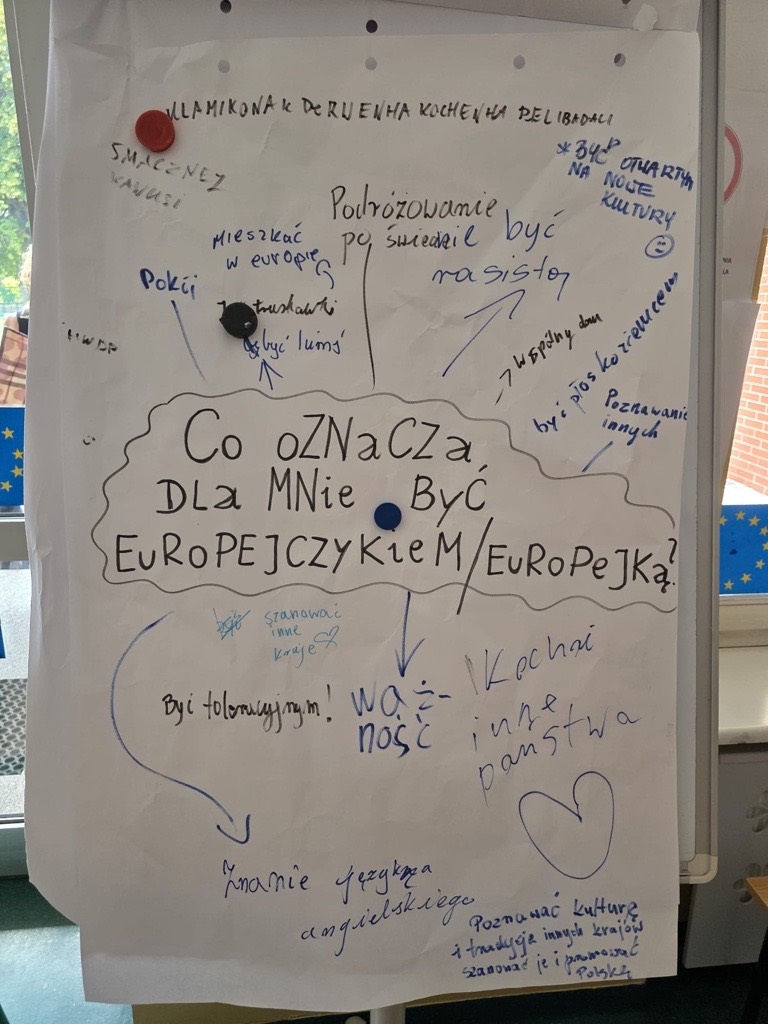 KLAMIKONAK DERWENHA KOCHENHA RELIBADALI
SMACZNEJ
KAWUSI
* BYĆ OTWARTYM
NA NOWE
KULTURY
Podróżowanie
po świecie
być
rasistą
Mieszkać
w europie
Pokój
truskawki
być lumś
HWDP
Wspólny dom
być płoskoziemcem
Poznawanie
innych
Co oZNaCZa
DLa MNie ByĆ
EuRoPEJCZyKieM/EuRoPeJKą?
szanować
inne
kraje
Być toleracyjnym!
waż-
ność
Kochai
inne
państwa
Znanie języka
angielskiego
Poznawać kulturę
i tradycje innych krajów
szanować je i promować
Polskę